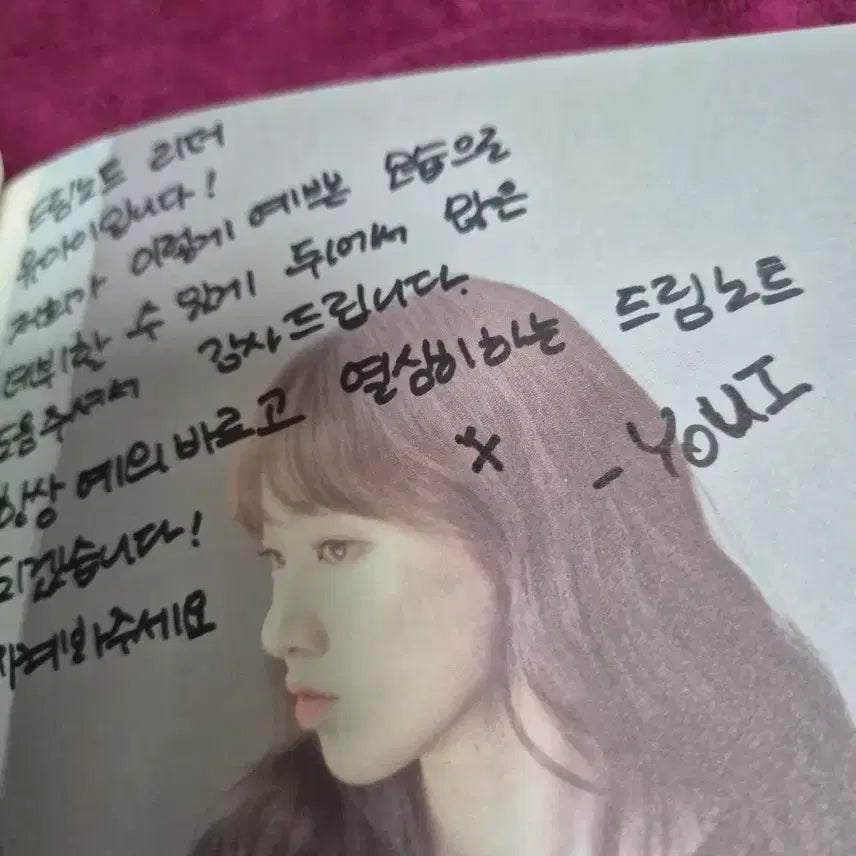 드림노트 리더
유아이입니다!
저희가 이렇게 예쁜 모습으로
데뷔할 수 있게 뒤에서 많은
도움주셔서 감사드립니다.
항상 예의바르고 열심히하는 드림노트
되겠습니다!
지켜봐주세요
-YOUI